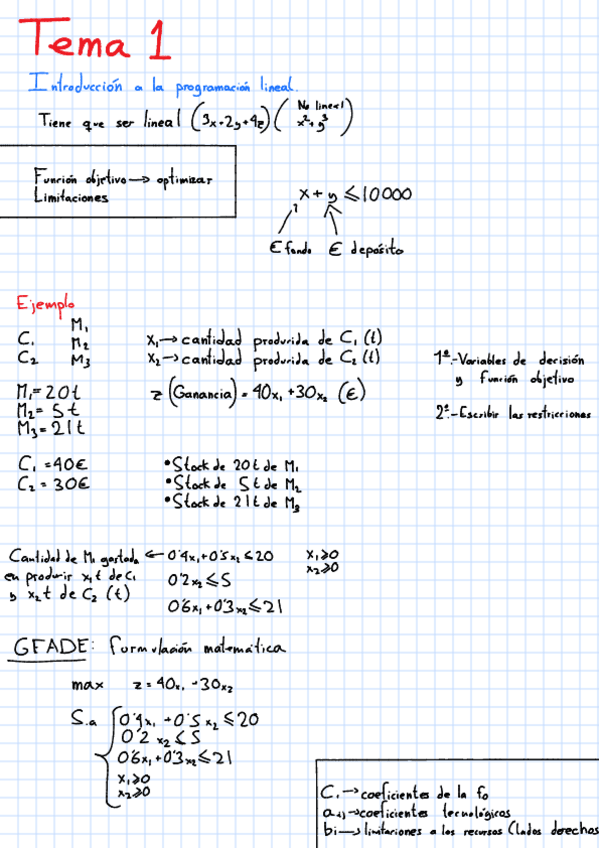 Tema 1
Introducción a la programación lineal.
Tiene que ser lineal (3x+2y+4z) (No lineal x²+y³)
Función objetivo → optimizar
Limitaciones
x + y ≤ 10000
€ fondo € depósito
Ejemplo
C₁ M₁
C₂ M₂
M₃
x₁ → cantidad producida de C₁ (t)
x₂ → cantidad producida de C₂ (t)
1º.-Variables de decisión
y función objetivo
2º.-Escribir las restricciones
M₁ = 20t
M₂ = 5t
M₃ = 21t
z (Ganancia) = 40x₁ + 30x₂ (€)
C₁ = 40€
C₂ = 30€
• Stock de 20t de M₁
• Stock de 5t de M₂
• Stock de 21t de M₃
Cantidad de M₁ gastada
en producir x₁t de C₁
y x₂t de C₂ (t)
← 0'4x₁+0'5x₂ ≤ 20
0'2x₂ ≤ 5
0'6x₁+0'3x₂ ≤ 21
x₁ ≥ 0
x₂ ≥ 0
GFADE: formulación matemática
max z = 40x₁ + 30x₂
S.a { 0'4x₁ + 0'5x₂ ≤ 20
0'2 x₂ ≤ 5
0'6x₁ + 0'3x₂ ≤ 21
x₁ ≥ 0
x₂ ≥ 0
C₁ → coeficientes de la fo
aᵢⱼ → coeficientes tecnológicos
bi → limitaciones a los recursos (lados derechos